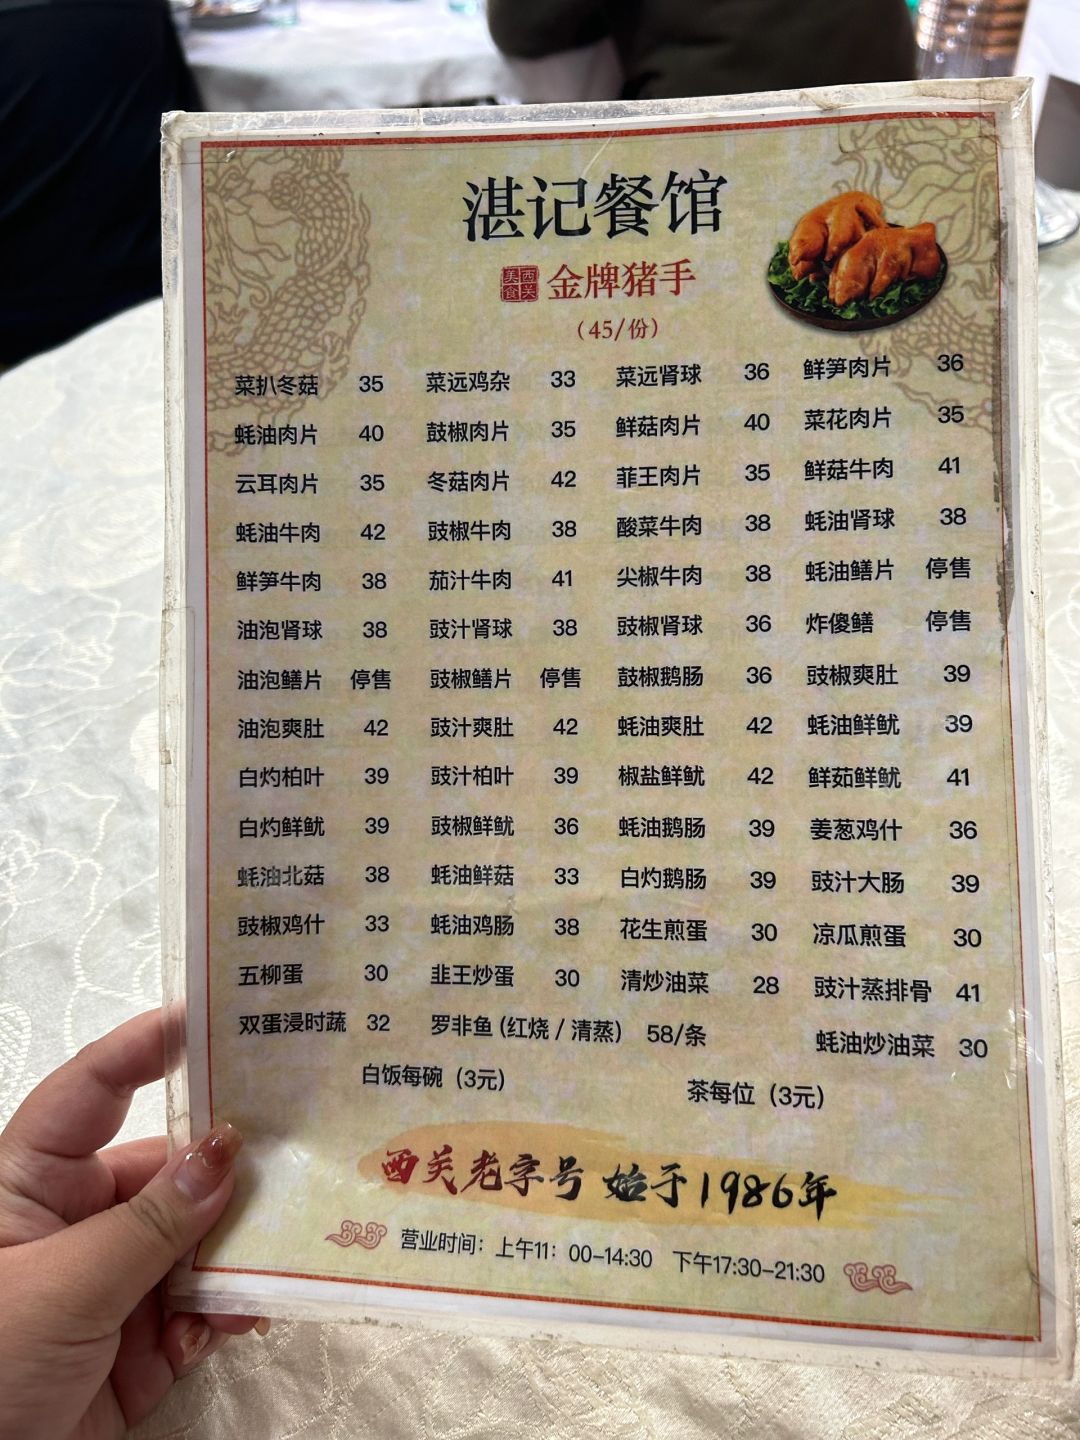 湛记餐馆
西关美食 金牌猪手
（45/份）
菜扒冬菇 35 菜远鸡杂 33 菜远肾球 36 鲜笋肉片 36
蚝油肉片 40 鼓椒肉片 35 鲜菇肉片 40 菜花肉片 35
云耳肉片 35 冬菇肉片 42 菲王肉片 35 鲜菇牛肉 41
蚝油牛肉 42 豉椒牛肉 38 酸菜牛肉 38 蚝油肾球 38
鲜笋牛肉 38 茄汁牛肉 41 尖椒牛肉 38 蚝油鳝片 停售
油泡肾球 38 豉汁肾球 38 豉椒肾球 36 炸傻鳝 停售
油泡鳝片 停售 豉椒鳝片 停售 鼓椒鹅肠 36 豉椒爽肚 39
油泡爽肚 42 豉汁爽肚 42 蚝油爽肚 42 蚝油鲜鱿 39
白灼柏叶 39 豉汁柏叶 39 椒盐鲜鱿 42 鲜茹鲜鱿 41
白灼鲜鱿 39 豉椒鲜鱿 36 蚝油鹅肠 39 姜葱鸡什 36
蚝油北菇 38 蚝油鲜菇 33 白灼鹅肠 39 豉汁大肠 39
豉椒鸡什 33 蚝油鸡肠 38 花生煎蛋 30 凉瓜煎蛋 30
五柳蛋 30 韭王炒蛋 30 清炒油菜 28 豉汁蒸排骨 41
双蛋浸时蔬 32 罗非鱼（红烧 / 清蒸） 58/条 蚝油炒油菜 30
白饭每碗（3元） 茶每位（3元）
西关老字号 始于1986年
营业时间：上午11：00-14:30 下午17:30-21:30